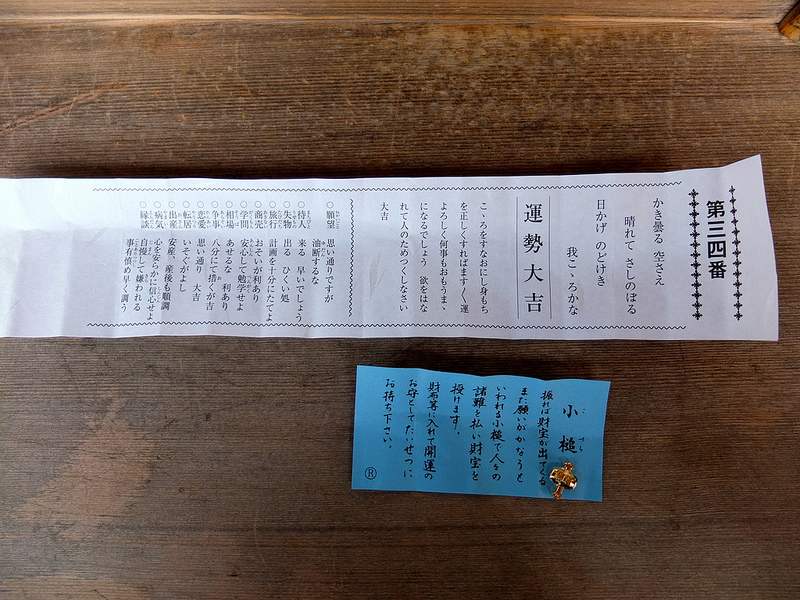 第三四番
かき曇る 空さえ
晴れて さしのぼる
日かげ のどけき
我こゝろかな
運勢大吉
こゝろをすなおにし身もち
を正しくすればます〳〵運
よろしく何事もおもうまゝ
になるでしょう 欲をはな
れて人のためつくしなさい
大吉
○願望 思い通りですが
油断するな
○待人 来る 早いでしょう
○失物 出る ひくい処
○旅行 計画を十分にたてよ
○商売 おそいが利あり
○学問 安心して勉学せよ
○相場 あせるな 利あり
○争事 八分にて捨くが吉
○恋愛 思い通り 大吉
○転居 いそぐがよし
○出産 安産、産後も順調
○病気 心を安らかに信心せよ
○縁談 自惚して嫌われる
事有慎め早く調う
小槌
こ づち
振れば財宝が出てくる
また願いがかなうと
いわれる小槌で人々の
諸難を払い財宝を
授けます。
財布等に入れて開運の
お守としてたいせつに
お持ち下さい。
®